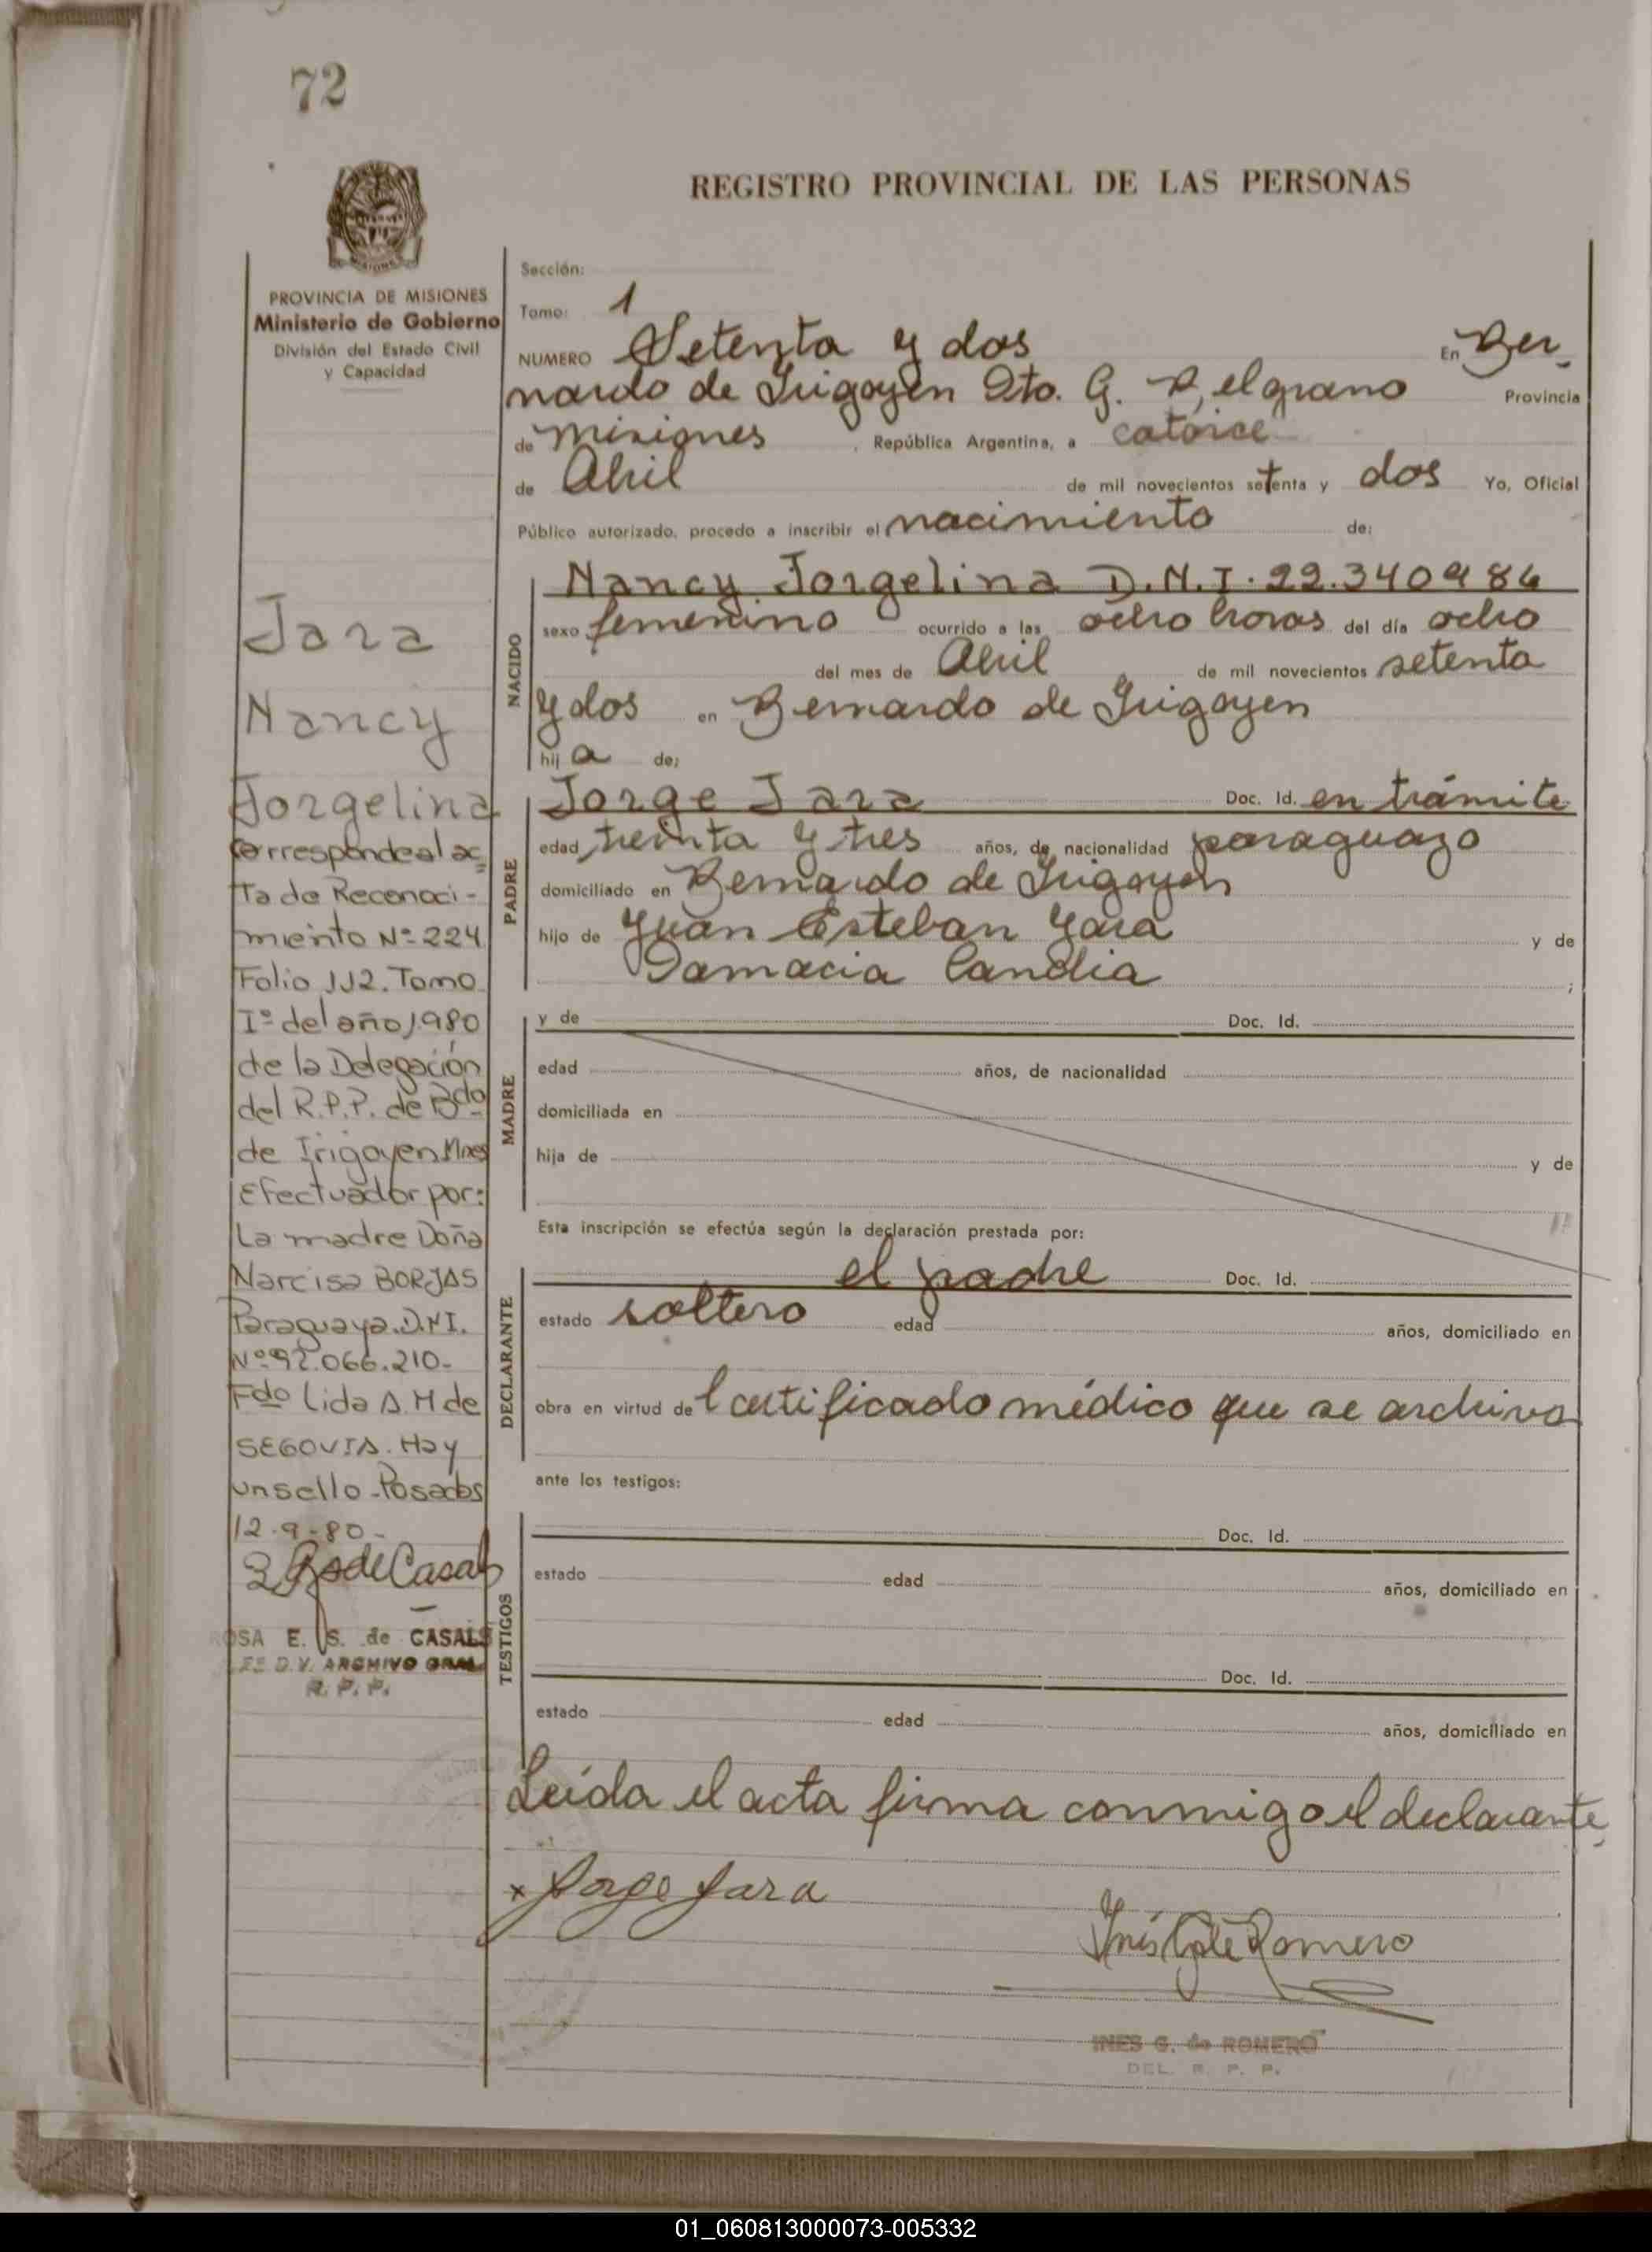 72
REGISTRO PROVINCIAL DE LAS PERSONAS
PROVINCIA DE MISIONES
Ministerio de Gobierno
División del Estado Civil
y Capacidad
Jara
Nancy
Jorgelina
Corresponde al ac
ta de Reconoci-
miento Nº 224
Folio 112. Tomo
Iº del año 1.980
de la Delegación
del R.P.P. de Bdo
de Irigoyen Mnes
Efectuador por:
La madre Doña
Narcisa BORJAS
Paraguaya. D.N.I.
Nº 92.066.210-
Fdo Lida A. M de
SEGOVIA. Hay
un sello - Posadas
12-9-80-
R de Casals
ROSA E. S. de CASALS
D.V. ARCHIVO GRAL
R. P. P.
Sección:
Tomo: 1
NUMERO Setenta y dos En Ber-
nardo de Irigoyen Dto. G. Belgrano Provincia
de Misiones , República Argentina, a catorce
de Abril de mil novecientos setenta y dos Yo, Oficial
Público autorizado, procedo a inscribir el nacimiento de:
NACIDO
Nancy Jorgelina D.N.I. 22.340986
sexo femenino ocurrido a las ocho horas del día ocho
del mes de Abril de mil novecientos setenta
y dos en Bernardo de Irigoyen
hij a de:
PADRE
Jorge Jara Doc. Id. en trámite
edad treinta y tres años, de nacionalidad paraguayo
domiciliado en Bernardo de Irigoyen
hijo de Juan Esteban Jara y de
Damacia Candia ;
MADRE
y de Doc. Id.
edad años, de nacionalidad
domiciliada en
hija de y de
Esta inscripción se efectúa según la declaración prestada por:
DECLARANTE
el padre Doc. Id.
estado soltero edad años, domiciliado en
obra en virtud de l certificado médico que se archiva
ante los testigos:
TESTIGOS
Doc. Id.
estado edad años, domiciliado en
Doc. Id.
estado edad años, domiciliado en
Leída el acta firma conmigo el declarante
x Jorge Jara
Inés de Romero
INES G. de ROMERO
DEL. R. P. P.
01_060813000073-005332